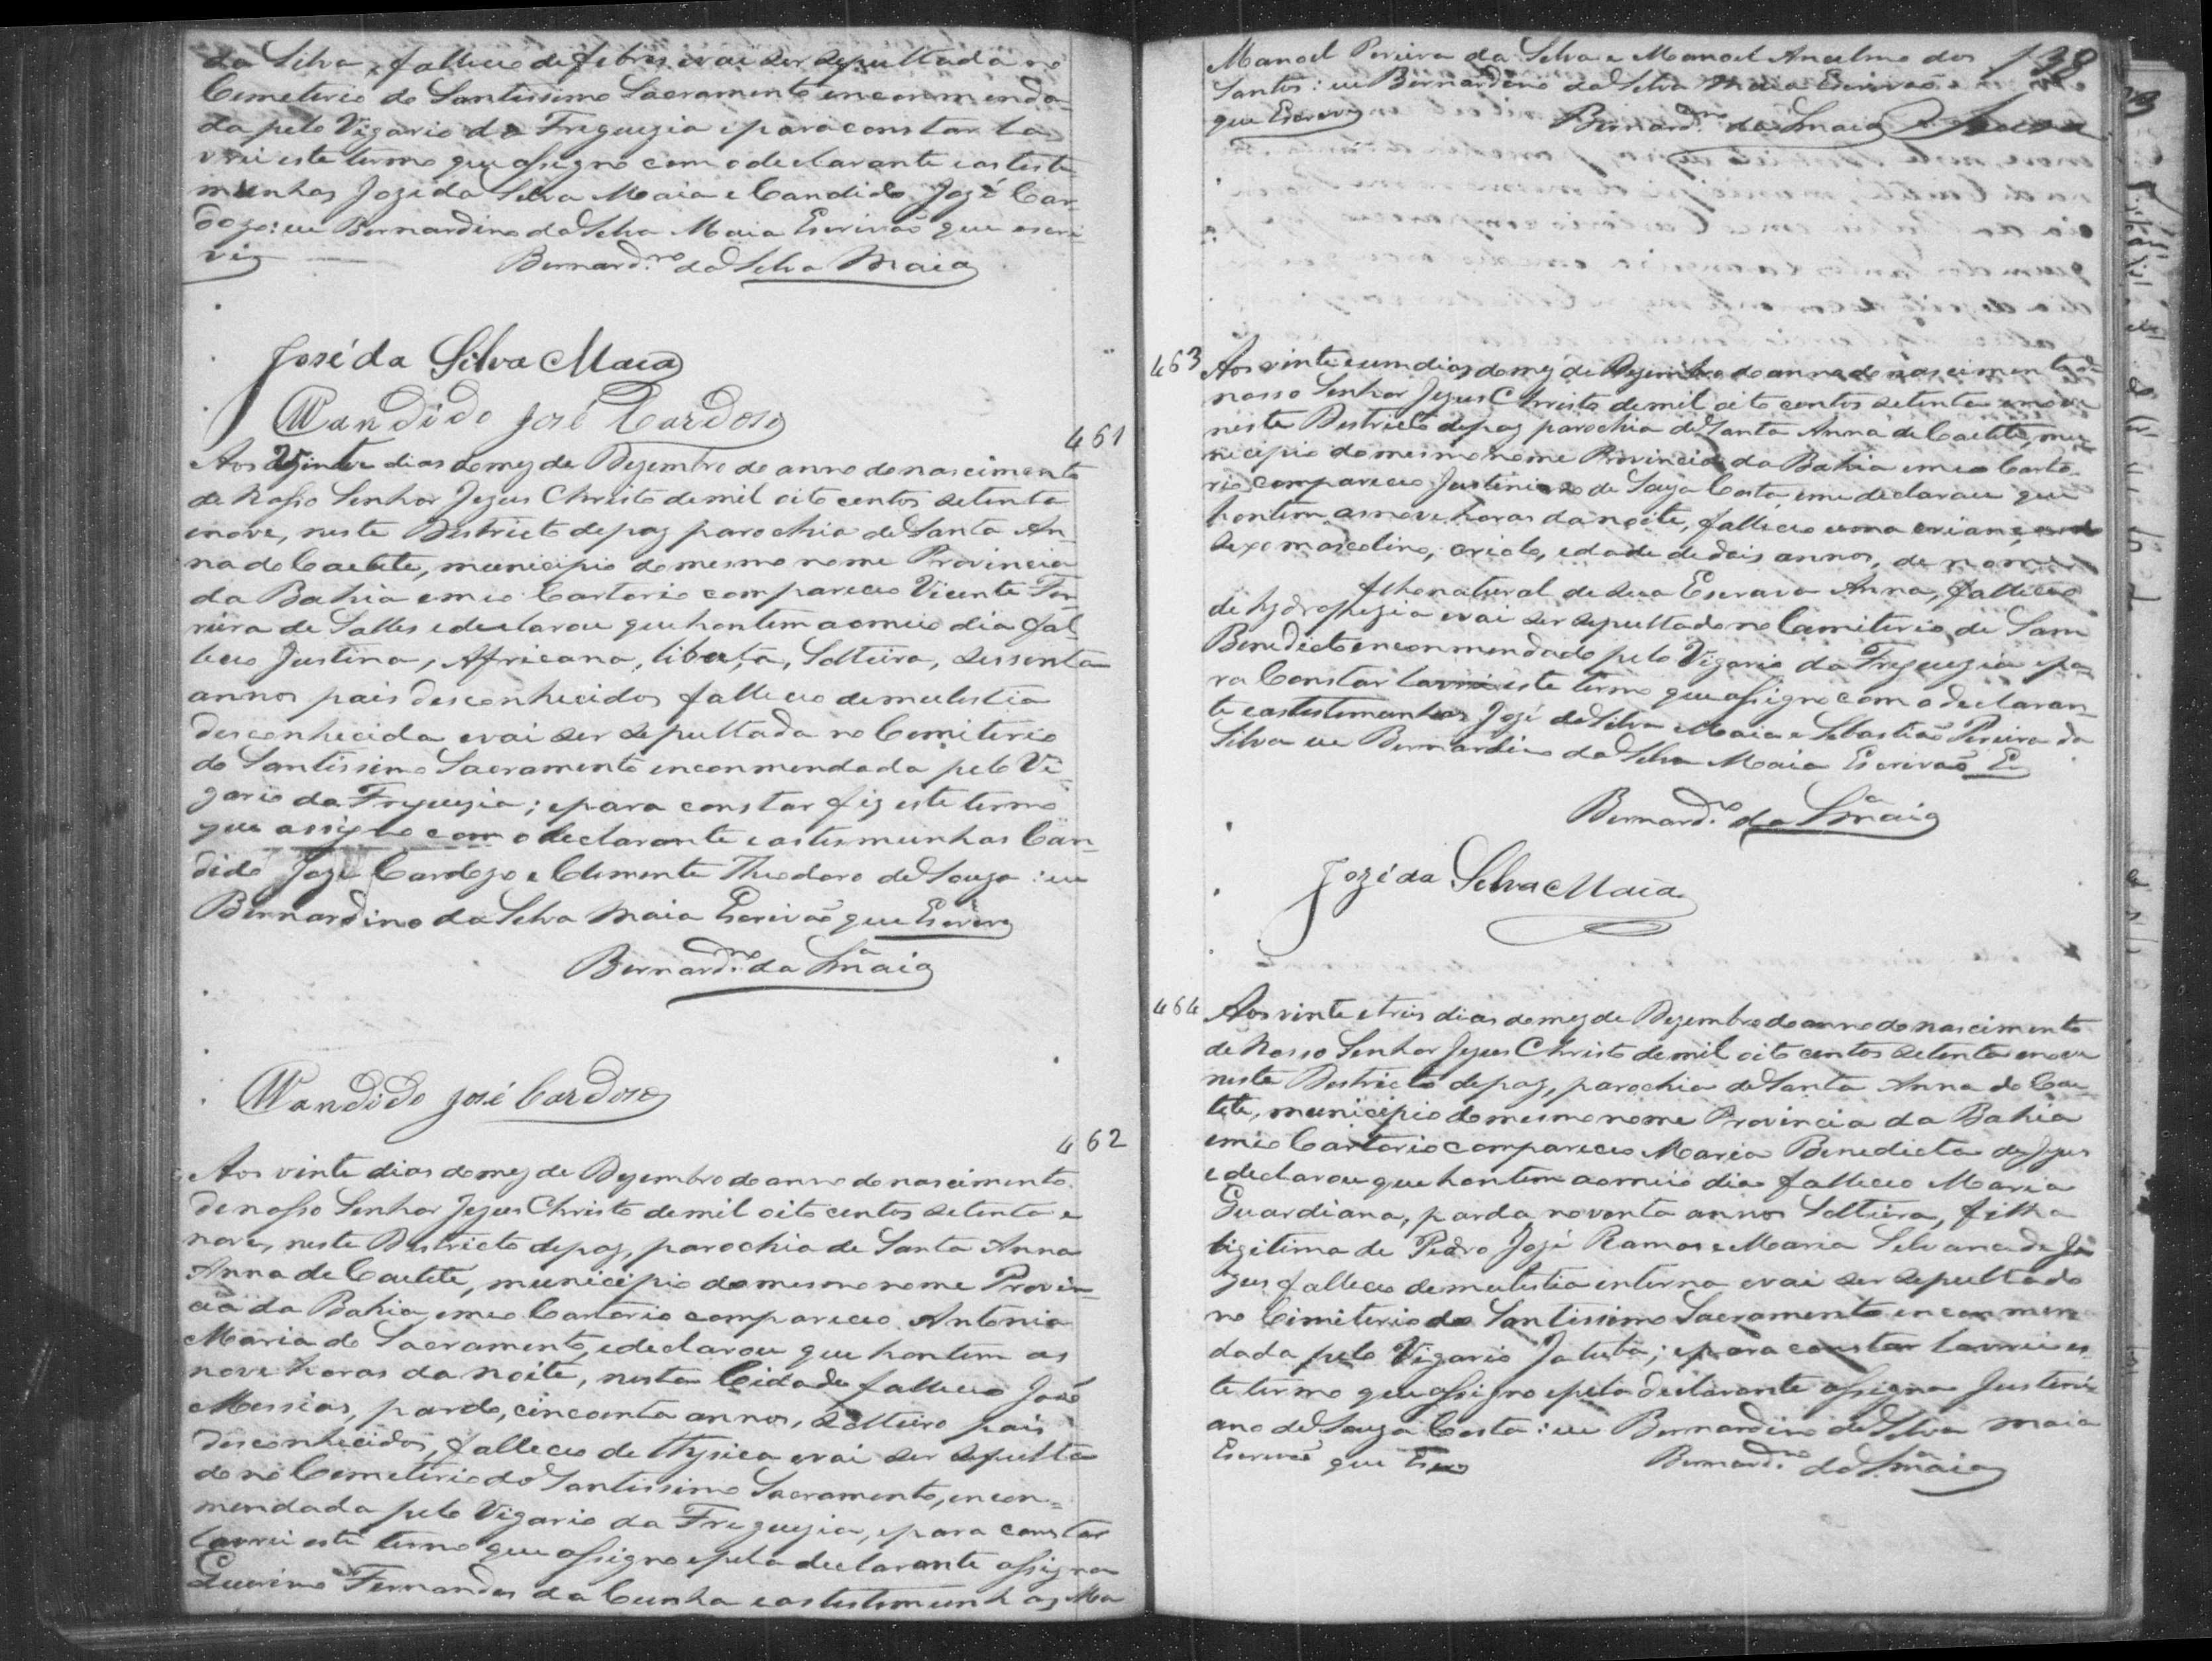 da Silva, falleceo de febres e vai ser sepultada no
Cemeterio do Santissimo Sacramento enconmenda-
da pelo Vigario da Freguezia e para constar la-
vrei este termo que assigno com o declarante e as teste-
munhas Jozé da Silva Maia e Candido Jozé Car-
dozo: eu Bernardino da Silva Maia Escrivão que escre-
vi
Bernard.no da Silva Maia
José da Silva Maia
Candido José Cardoso
461
Aos Vinte dias do mez de Dezembro do anno do nascimento
de Nosso Senhor Jezus Christo de mil oito centos setenta
e nove, neste Destricto de paz parochia de Santa An-
na do Caetete, municipio do mesmo nome Provincia
da Bahia em meo Cartorio compareceo Vicente Fer-
reira de Salles e declarou que hontem ao meio dia fal-
leceo Justina, Africana, liberta, Solteira, sessenta
annos pais desconhecidos falleceo de mulestia
desconhecida e vai ser sepultada no Cemiterio
do Santissimo Sacramento enconmendada pelo Vi-
gario da Freguezia; e para constar fiz este termo
que assigno com o declarante e as tesmunhas Can-
dido Jozé Cardozo e Clemente Theodoro de Souza: eu
Bernardino da Silva Maia Escrivão que Escrevy
Bernard.no da S.a Maia
Candido José Cardoso
462
Aos vinte dias do mez de Dezembro do anno do nascimento
de nosso Senhor Jezus Christo de mil oito centos setenta e
nove, neste Destricto de paz, parochia de Santa Anna
Anna de Caetete, municipio do mesmo nome Provin-
cia da Bahia em meo Cartorio compareceo Antonia
Maria do Sacramento, e declarou que hontem as
nove horas da noite, nesta Cidade falleceo José
Messias, pardo, cincoenta annos, Solteiro pais
desconhecidos, falleceo de Thysica e vai ser sepulta
do no Cemeterio do Santissimo Sacramento, encon-
mendada pelo Vigario da Freguezia, e para constar
lavrei este termo que assigno e pela declarante assigna
Querino Fernandes da Cunha e as testemunhas Ma
138
Manoel Pereira da Silva e Manoel Anselmo dos
Santos: eu Bernardino da Silva Maia Escrivão
que Escrevy
Bernard.no da S Maia
463
Aos vinte e um dias do mez de Dezembro do anno do nascimento de
nosso Senhor Jezus Christo de mil oito centos setenta e nove
neste Destricto de paz parochia de Santa Anna de Caetete, mu-
nicipio do mesmo nome Provincia da Bahia em meo Carto-
rio compareceo Justiniano de Souza Costa, e me declarou que
hontem as nove horas da noite, falleceo uma criança do
sexo mascolino, criolo, edade de dois annos, de nome
filho natural de sua Escrava Anna, falleceo
de hydropezia e vai ser sepultado no Cemiterio de Sam
Benedicto enconmendado pelo Vigario da Freguezia e pa-
ra Constar lavrei este termo que assigno com o declaran-
te e as testemunhas José da Silva Maia e Sebastião Pereira da
Silva eu Bernardino da Silva Maia Escrivão E
Bernard.no da S.a Maia
Jozé da Silva Maia
464
Aos vinte e tres dias do mez de Dezembro do anno do nascimento
de Nosso Senhor Jezus Christo de mil oito centos setenta e nove
neste Destricto de paz, parochia de Santa Anna do Cae
tete, municipio do mesmo nome Provincia da Bahia
em meo Cartorio compareceo Maria Benedicta de Jezus
e declarou que hontem ao meio dia falleceo Maria
Guardiana, parda noventa annos Solteira, filha
ligitima de Pedro Jozé Ramos e Maria Silvana de Je
zus falleceo de mulestia interna e vai ser sepultado
no Cimiterio do Santissimo Sacramento enconmen
dada pelo Vigario Jatubá; e para constar lavrei es
te termo que assigno e pela declarante assigna Justini-
ano de Souza Costa: eu Bernardino da Silva Maia
Escrivão que Escrevo
Bernard.no da S.a Maia